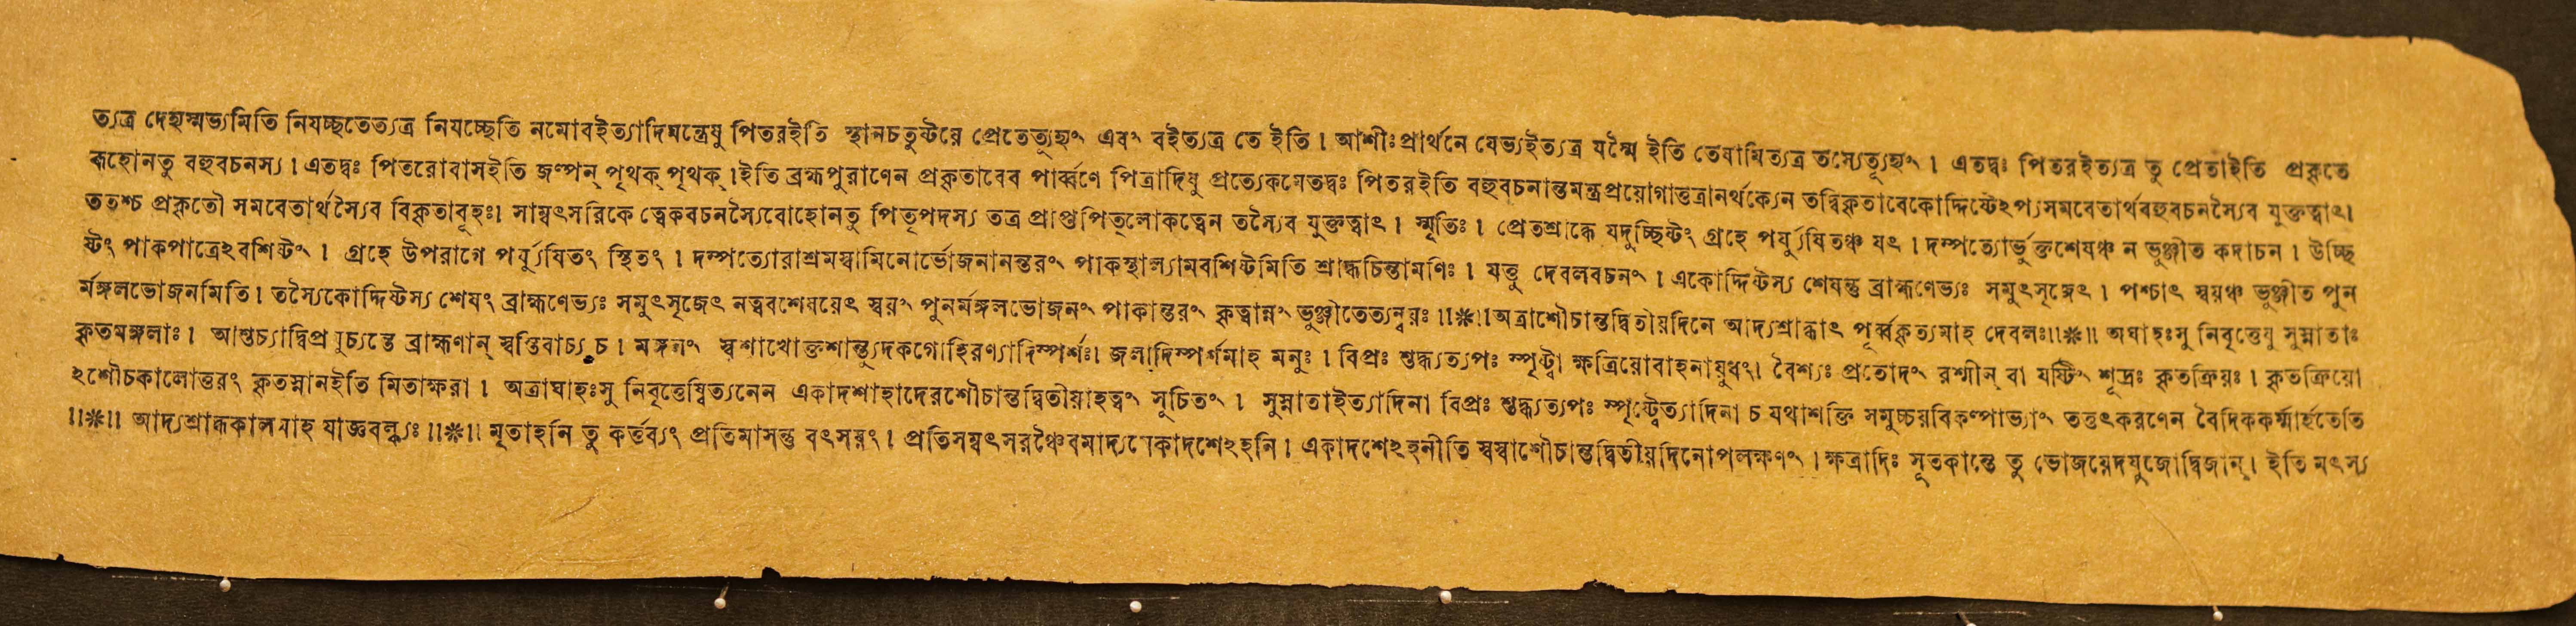 ত্যত্র দেহ্যস্মভ্যমিতি নিযচ্ছতেত্যত্র নিযচ্ছেতি নমোবইত্যাদিমন্ত্রেষু পিতরইতি স্থানচতুষ্টয়ে প্রেতেত্যূহ্যং এবং বইত্যত্র তে ইতি । আশীঃপ্রার্থনে যেভ্যইত্যত্র যস্মৈ ইতি তেষামিত্যত্র তস্যেত্যূহ্যং । এতদ্বঃ পিতরইত্যত্র তু প্রেতাইতি প্রকৃতে
রূহোনতু বহুবচনস্য । এতদ্বঃ পিতরোবাসইতি জল্পন্ পৃথক্ পৃথক্ ।ইতি ব্রহ্মপুরাণেন প্রকৃতাবেব পার্ব্বণে পিত্রাদিষু প্রত্যেকমেতদ্বঃ পিতরইতি বহুবচনান্তমন্ত্রপ্রয়োগাত্তত্রানর্থক্যেন তদ্বিকৃতাবেকোদ্দিষ্টেঽপ্যসমবেতার্থবহুবচনস্যৈব যুক্তত্বাৎ।
ততশ্চ প্রকৃতৌ সমবেতার্থস্যৈব বিকৃতাবূহঃ। সাম্বৎসরিকে ত্বেকবচনস্যৈবোহোনতু পিতৃপদস্য তত্র প্রাপ্তপিতৃলোকত্বেন তস্যৈব যুক্তত্বাৎ । স্মৃতিঃ । প্রেতশ্রাদ্ধে যদুচ্ছিষ্টং গ্রহে পর্যুষিতঞ্চ যৎ । দম্পত্যোর্ভুক্তশেষঞ্চ ন ভুঞ্জীত কদাচন । উচ্ছি
ষ্টং পাকপাত্রেঽবশিষ্টং । গ্রহে উপরাগে পর্য্যুষিতং স্থিতং । দম্পত্যোরাশ্রমস্বামিনোর্ভোজনানন্তরং পাকস্থাল্যামবশিষ্টমিতি শ্রাদ্ধচিন্তামণিঃ । যত্তু দেবলবচনং । একোদ্দিষ্টস্য শেষন্তু ব্রাহ্মণেভ্যঃ সমুৎসৃজেৎ । পশ্চাৎ স্বয়ঞ্চ ভুঞ্জীত পুন
র্মঙ্গলভোজনমিতি । তস্যৈকোদ্দিষ্টস্য শেষং ব্রাহ্মণেভ্যঃ সমুৎসৃজেৎ নত্ববশেষয়েৎ স্বয়ং পুনর্মঙ্গলভোজনং পাকান্তরং কৃত্বান্নং ভুঞ্জীতেত্যন্বয়ঃ ॥※॥অত্রাশৌচান্তদ্বিতীয়দিনে আদ্যশ্রাদ্ধাৎ পূর্ব্বকৃত্যমাহ দেবলঃ॥※॥ অঘাহঃসু নিবৃত্তেষু সুস্নাতাঃ
কৃতমঙ্গলাঃ । আশুচ্যাদ্বিপ্রমুচ্যন্তে ব্রাহ্মণান্ স্বস্তিবাচ্য চ । মঙ্গলং স্বশাখোক্তশান্ত্যুদকগোহিরণ্যাদিস্পর্শঃ। জলাদিস্পর্শমাহ মনুঃ । বিপ্রঃ শুদ্ধ্যত্যপঃ স্পৃষ্ট্বা ক্ষত্রিয়োবাহনায়ুধং। বৈশ্যঃ প্রতোদং রশ্মীন্ বা যষ্টিং শূদ্রঃ কৃতক্রিয়ঃ । কৃতক্রিয়ো
ঽশৌচকালোত্তরং কৃতস্নানইতি মিতাক্ষরা । অত্রাঘাহঃসু নিবৃত্তেষ্বিত্যনেন একাদশাহাদেরশৌচান্তদ্বিতীয়াহত্বং সুচিতং । সুস্নাতাইত্যাদিনা বিপ্রঃ শুদ্ধ্যত্যপঃ স্পৃষ্ট্বেত্যাদিনা চ যথাশক্তি সমুচ্চয়বিকল্পাভ্যাং তত্তৎকরণেন বৈদিককর্ম্মার্হতেতি
॥※॥ আদ্যশ্রাদ্ধকালমাহ যাজ্ঞবল্ক্যঃ ॥※॥ মৃতাহনি তু কর্ত্তব্যং প্রতিমাসন্তু বৎসরং । প্রতিসম্বৎসরঞ্চৈবমাদ্যমেকাদশেঽহনি । একাদশেঽহনীতি স্বস্বাশৌচান্তদ্বিতীয়দিনোপলক্ষণং । ক্ষত্রাদিঃ সূতকান্তে তু ভোজয়েদযুজোদ্বিজান্ । ইতি মৎস্য